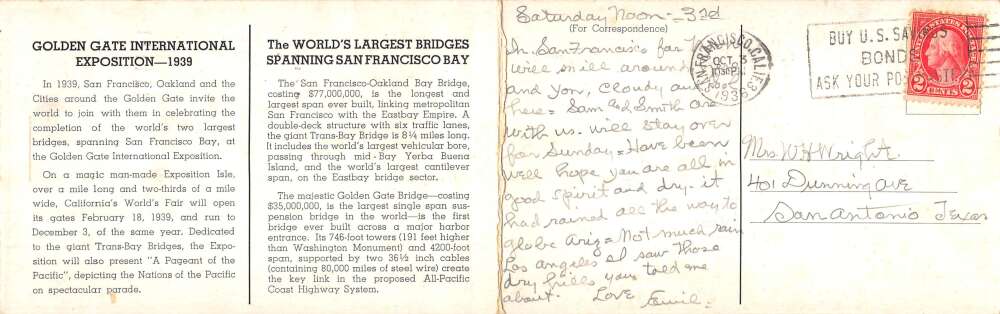 GOLDEN GATE INTERNATIONAL
EXPOSITION—1939
In 1939, San Francisco, Oakland and the
Cities around the Golden Gate invite the
world to join with them in celebrating the
completion of the world's two largest
bridges, spanning San Francisco Bay, at
the Golden Gate International Exposition.
On a magic man-made Exposition Isle,
over a mile long and two-thirds of a mile
wide, California's World's Fair will open
its gates February 18, 1939, and run to
December 3, of the same year. Dedicated
to the giant Trans-Bay Bridges, the Expo-
sition will also present "A Pageant of the
Pacific", depicting the Nations of the Pacific
on spectacular parade.
The WORLD'S LARGEST BRIDGES
SPANNING SAN FRANCISCO BAY
The San Francisco-Oakland Bay Bridge,
costing $77,000,000, is the longest and
largest span ever built, linking metropolitan
San Francisco with the Eastbay Empire. A
double-deck structure with six traffic lanes,
the giant Trans-Bay Bridge is 8¼ miles long.
It includes the world's largest vehicular bore,
passing through mid-Bay Yerba Buena
Island, and the world's largest cantilever
span, on the Eastbay bridge sector.
The majestic Golden Gate Bridge—costing
$35,000,000, is the largest single span sus-
pension bridge in the world—is the first
bridge ever built across a major harbor
entrance. Its 746-foot towers (191 feet higher
than Washington Monument) and 4200-foot
span, supported by two 36½ inch cables
(containing 80,000 miles of steel wire) create
the key link in the proposed All-Pacific
Coast Highway System.
Saturday Noon - 23d
(For Correspondence)
In San Francisco far
will mill around
and Yon, Cloudy
here = Sam and Smith are
with us. will stay over
for Sunday = Have been
well hope you are all in
good spirit and dry - it
had rained all the way to
globe Ariz = Not much rain
Los angeles I saw those
dry hills you told me
about. Love Emil =
SAN FRANCISCO, CALIF.
OCT
1938
BUY U.S. SAVINGS
BONDS
ASK YOUR POSTMASTER
UNITED STATES POSTAGE
2 CENTS 2
Mrs W H Wright
401 Dunning Ave
San Antonio Texas